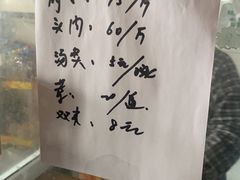 75/斤
头肉：60/斤
汤类：5元/碗
菜：20/
双夹：8元